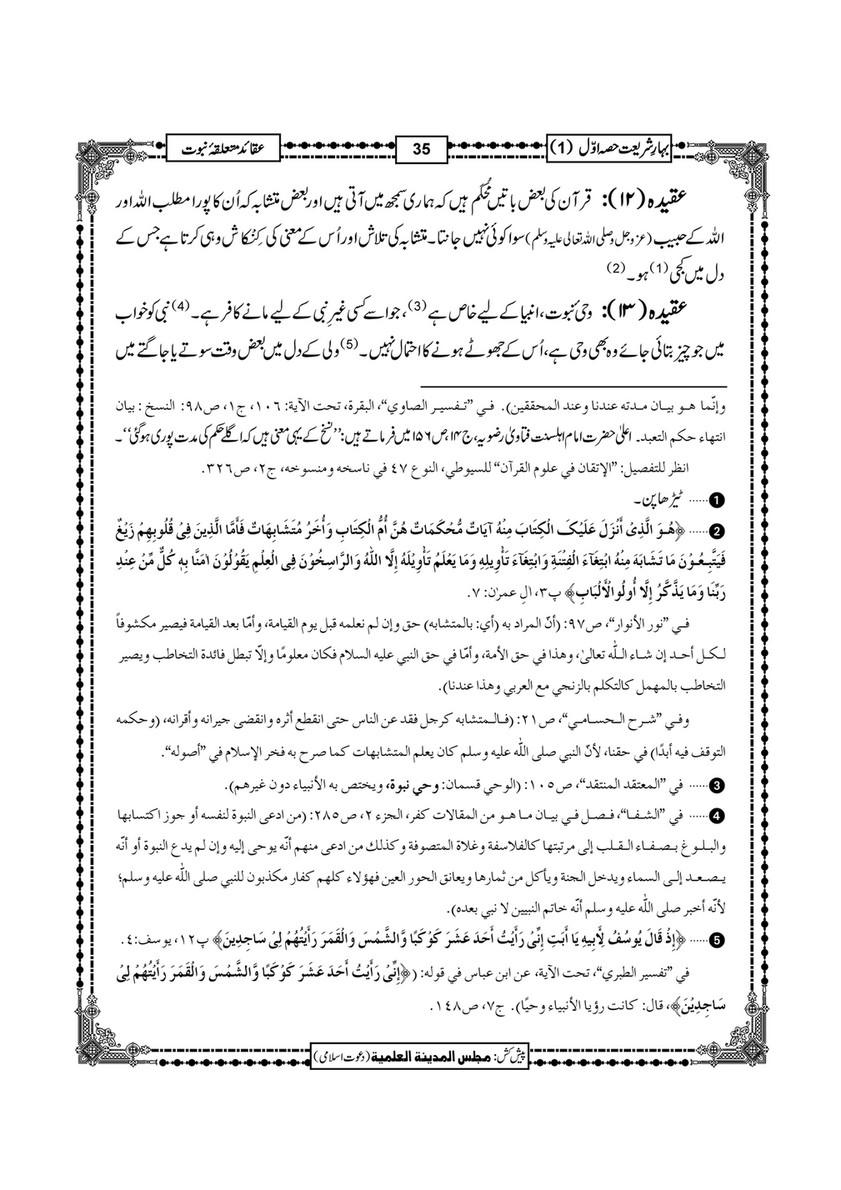 بہارِشریعت حصہ اوّل (1)
35
عقائد متعلقۂ نبوت
عقیدہ (۱۲): قرآن کی بعض باتیں مُحکَم ہیں کہ ہماری سمجھ میں آتی ہیں اور بعض متشابہ کہ اُن کا پورا مطلب اللہ اور
اللہ کے حبیب (عزوجل وصلی اللہ تعالیٰ علیہ وسلم) سوا کوئی نہیں جانتا۔ متشابہ کی تلاش اور اُس کے معنی کی کِنْکاش وہی کرتا ہے جس کے
دل میں کجی (1) ہو۔ (2)
عقیدہ (۱۳): وحیِ نبوت، انبیا کے لیے خاص ہے (3)، جو اسے کسی غیرِ نبی کے لیے مانے کافر ہے۔ (4) نبی کو خواب
میں جو چیز بتائی جائے وہ بھی وحی ہے، اُس کے جھوٹے ہونے کا احتمال نہیں۔ (5) ولی کے دل میں بعض وقت سوتے یا جاگتے میں
وإنّما هـو بيـان مـدته عندنا وعند المحققين). فـي ”تـفسيـر الصاوي“، البقرة، تحت الآية: ١٠٦، ج١، ص٩٨: النسخ : بيان
انتهاء حكم التعبد۔ اعلیٰ حضرت امام اہلسنت فتاویٰ رضویہ، ج۱۴، ص۱۵۶ میں فرماتے ہیں: ’’نسخ کے یہی معنی ہیں کہ اگلے حکم کی مدت پوری ہوگئی‘‘۔
انظر للتفصيل: ”الإتقان في علوم القرآن“ للسيوطي، النوع ٤٧ في ناسخه ومنسوخه، ج٢، ص٣٢٦.
1...... ٹیڑھا پن۔
2...... ﴿هُـوَ الَّذِىْ أَنْزَلَ عَلَيْكَ الْكِتَابَ مِنْهُ آيَاتٌ مُّحْكَمَاتٌ هُنَّ أُمُّ الْكِتَابِ وَأُخَرُ مُتَشَابِهَاتٌ فَأَمَّا الَّذِينَ فِىْ قُلُوبِهِمْ زَيْغٌ
فَيَتَّبِعُـوْنَ مَا تَشَابَهَ مِنْهُ ابْتِغَآءَ الْفِتْنَةِ وَابْتِغَآءَ تَأْوِيلِهِ وَمَا يَعْلَمُ تَأْوِيْلَهُ إِلَّا اللهُ وَالرَّاسِخُوْنَ فِى الْعِلْمِ يَقُوْلُوْنَ اٰمَنَّا بِهٖ كُلٌّ مِّنْ عِنْدِ
رَبِّنَا وَمَا يَذَّكَّرُ إِلَّا أُولُوالْأَلْبَابِ﴾ پ۳، اٰلِ عمرٰن: ٧.
فـي ”نور الأنوار“، ص٩٧: (أنّ المراد به (أي: بالمتشابه) حق وإن لم نعلمه قبل يوم القيامة، وأمّا بعد القيامة فيصير مكشوفاً
لـكـل أحـد إن شـاء الـلّٰه تعالىٰ، وهذا في حق الأمة، وأمّا في حق النبي عليه السلام فكان معلومًا وإلّا تبطل فائدة التخاطب ويصير
التخاطب بالمهمل كالتكلم بالزنجي مع العربي وهذا عندنا).
وفـي ”شـرح الـحسـامـي“، ص٢١: (فـالـمتشابه كرجل فقد عن الناس حتى انقطع أثره وانقضى جيرانه وأقرانه، (وحكمه
التوقف فيه أبدًا) في حقنا، لأنّ النبي صلى اللّٰه عليه وسلم كان يعلم المتشابهات كما صرح به فخر الإسلام في ”أصوله“.
3...... في ”المعتقد المنتقد“، ص١٠٥: (الوحي قسمان: وحي نبوة، ويختص به الأنبياء دون غيرهم).
4...... في ”الشـفـا“، فـصـل فـي بيـان مـا هـو من المقالات كفر، الجزء ٢، ص٢٨٥: (من ادعى النبوة لنفسه أو جوز اكتسابها
والبـلـوغ بـصـفـاء الـقـلـب إلى مرتبتها كالفلاسفة وغلاة المتصوفة وكذلك من ادعى منهم أنّه يوحى إليه وإن لم يدع النبوة أو أنّه
يـصـعـد إلـى السماء ويدخل الجنة ويأكل من ثمارها ويعانق الحور العين فهؤلاء كلهم كفار مكذبون للنبي صلى اللّٰه عليه وسلم؛
لأنّه أخبر صلى اللّٰه عليه وسلم أنّه خاتم النبيين لا نبي بعده).
5...... ﴿إِذْ قَالَ يُوسُفُ لِأَبِيهِ يَا أَبَتِ إِنِّىْ رَأَيْتُ أَحَدَ عَشَرَ كَوْكَبًا وَّالشَّمْسَ وَالْقَمَرَ رَأَيْتُهُمْ لِىْ سَاجِدِينَ﴾ پ١٢، يوسف: ٤ .
في ”تفسير الطبري“، تحت الآية، عن ابن عباس في قوله: (﴿إِنِّىْ رَأَيْتُ أَحَدَ عَشَرَ كَوْكَبًا وَّالشَّمْسَ وَالْقَمَرَ رَأَيْتُهُمْ لِىْ
سَاجِدِيْنَ﴾، قال: كانت رؤيا الأنبياء وحيًا). ج٧، ص١٤٨.
پیش کش: مجلس المدينة العلمية (دعوت اسلامی)